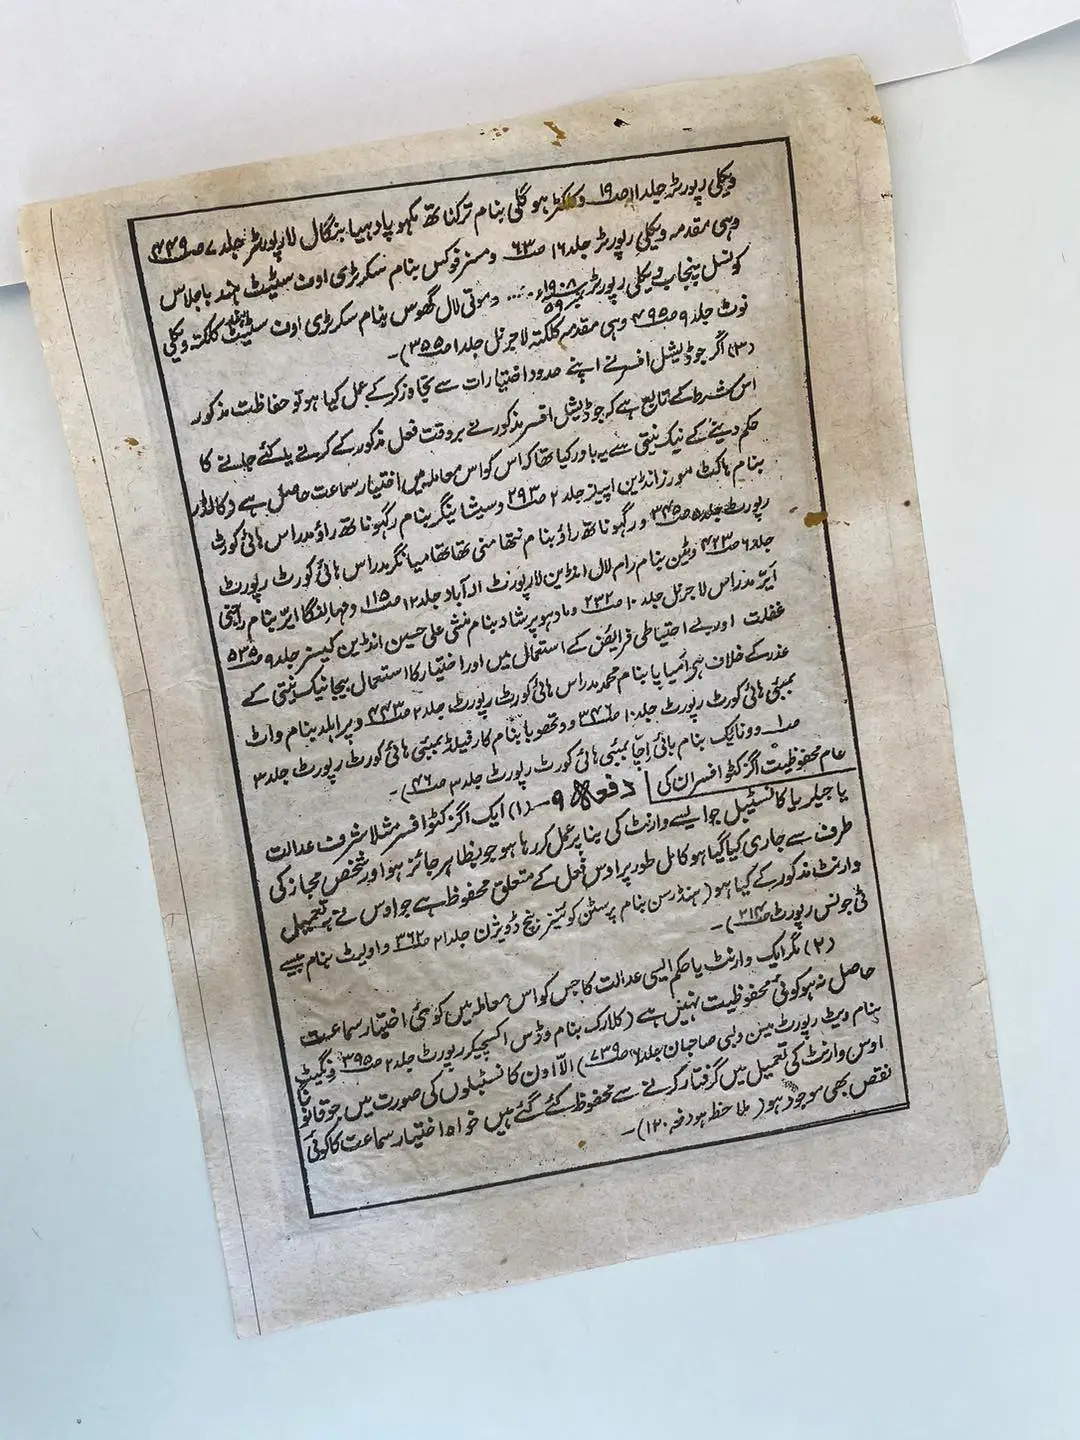 ویکلی رپورٹر جلد ۱۱ ص۱۹ وکلکٹر ہوگلی بنام ترکناتھ مکھوپادھیا بنگال لا رپورٹر جلد ۷ ص۴۴۹
وہی مقدمہ ویکلی رپورٹر جلد ۱۶ ص۶۳ ومسز فوکس بنام سکرٹری اوف سٹیٹ ہند باجلاس
کونسل پنجاب ویکلی رپورٹر ۱۹۰۸ء نمبر ۵۹ .... وموتی لال گھوس بنام سکرٹری اوف سٹیٹ کلکتہ ویکلی
نوٹ جلد ۹ ص۴۹۵ وہی مقدمہ کلکتہ لا جرنل جلد ۱ ص۳۵۵)۔
(۳) اگر جوڈیشل افسر نے اپنے حدود اختیارات سے تجاوز کرکے عمل کیا ہو تو حفاظت مذکور
اس شرط کے تابع ہے کہ جوڈیشل افسر مذکور نے بروقت فعل مذکور کے کرنے یا کئے جانے کا
حکم دینے کے نیک نیتی سے یہ باور کیا تھا کہ اس کو اس معاملہ میں اختیار سماعت حاصل ہے (کالڈر
بنام ہاکٹ مورز انڈین اپیلز جلد ۲ ص۲۹۳ وسیشاینگر بنام رگھوناتھ راؤ مدراس ہائی کورٹ
رپورٹ جلد ۵ ص۳۴۵ ورگھوناتھ راؤ بنام نتھامنی تھاتھامیانگر مدراس ہائی کورٹ رپورٹ
جلد ۶ ص۴۲۳ وٹین بنام رام لال انڈین لا رپورٹ الہ آباد جلد ۱۲ ص۱۱۵ ومہالنگا ایر بنام
ایر مدراس لا جرنل جلد ۱۰ ص۲۳۲ ومادھو پرشاد بنام منشی علی حسین انڈین کیسز جلد ۹ ص۵۳۵
غفلت اور بے احتیاطی فرائض کے استعمال میں اور اختیار کا استعمال بیجا نیک نیتی کے
عذر کے خلاف ہیں بنام محمد مدراس ہائی کورٹ رپورٹ جلد ۲ ص۴۴۳ وپراہلد بنام واٹ
بمبئی ہائی کورٹ رپورٹ جلد ۱۰ ص۳۴۶ وو تھوبا بنام کارفیلڈ بمبئی ہائی کورٹ رپورٹ جلد ۳
ص۱ وونائک بنام بائی اچا بمبئی ہائی کورٹ رپورٹ جلد ۳ ص۴۶)۔
عام محفوظیت اگزکٹو افسران کی | دفعہ ۹۔ (۱) ایک اگزکٹو افسر مثلاً شرف عدالت
یا جیلر یا کانسٹیبل جو ایسے وارنٹ کی بنا پر عمل کر رہا ہو جو بظاہر جائز ہو اور شخص مجاز کی
طرف سے جاری کیا گیا ہو کامل طور پر اوس فعل کے متعلق محفوظ ہے جو اوس نے بہ تعمیل
وارنٹ مذکور کے کیا ہو (ہنڈرسن بنام پرسٹن کوئینز بنچ ڈویژن جلد ۲۱ ص۳۶۲ واولیٹ بنام
ٹی جونس رپورٹ ص۲۱۴)۔
(۲) مگر ایک وارنٹ یا حکم ایسی عدالت کا جس کو اس معاملہ میں کوئی اختیار سماعت
حاصل نہ ہو کوئی محفوظیت نہیں ہے (کلارک بنام وڈس اکسچیکر رپورٹ جلد ۲ ص۳۹۵
بنام ویٹ رپورٹ مین ولبی صاحبان جلد ۶ ص۷۳۹) الّا اون کانسٹبلوں کی صورت میں جو قانوناً
اوس وارنٹ کی تعمیل میں گرفتار کرنے سے محفوظ کئے گئے ہیں خواہ اختیار سماعت کا کوئی
نقص بھی موجود ہو (ملاحظہ ہو دفعہ ۱۲۰)۔